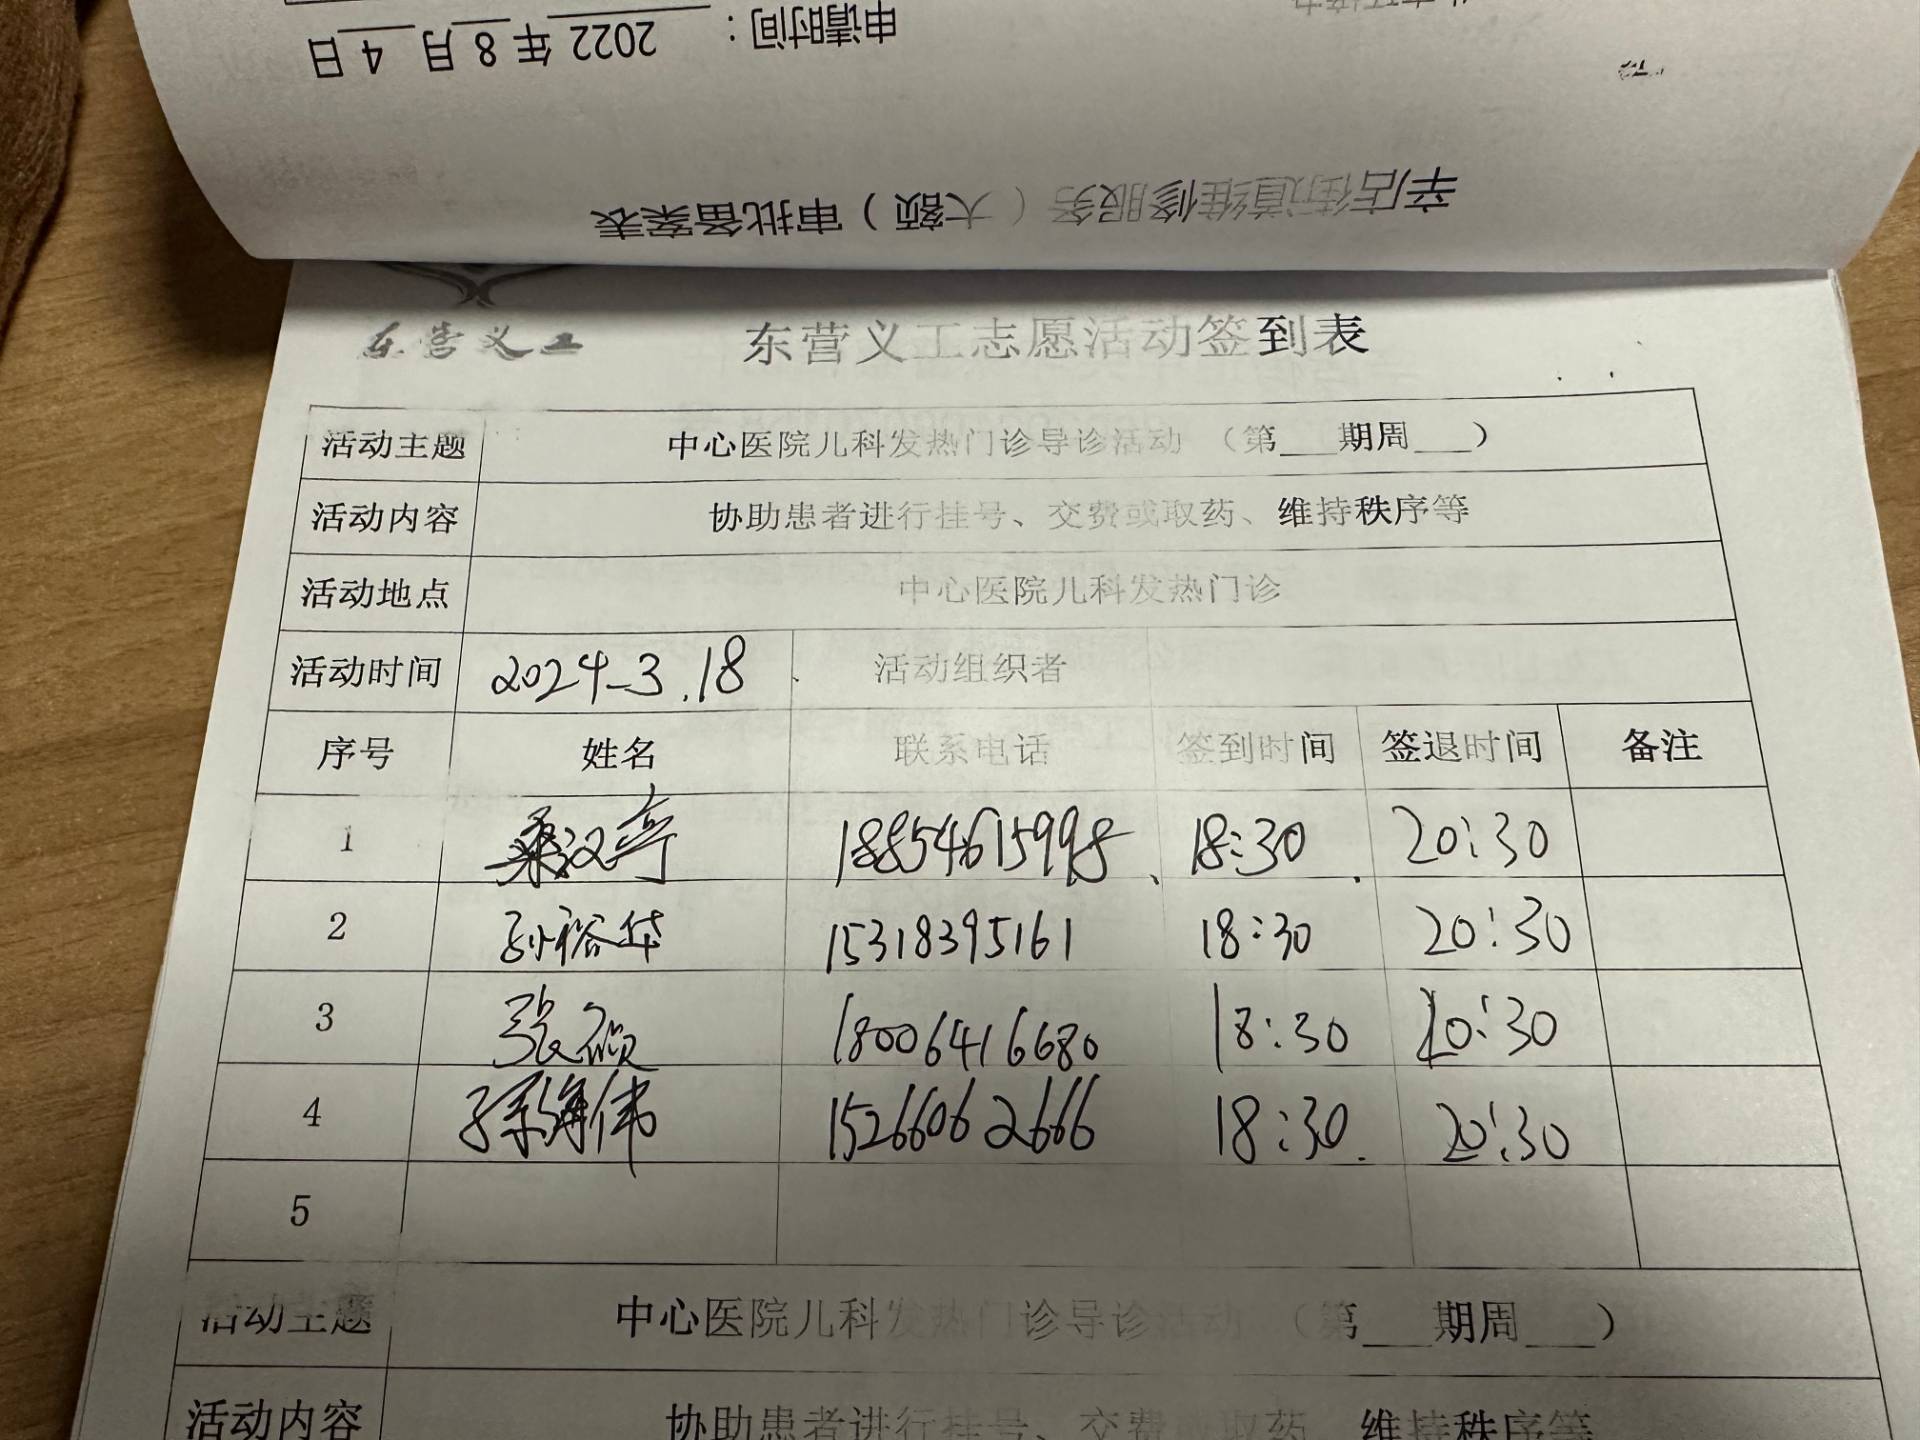 申请时间： 2022 年 8 月 4 日
辛店街道维修服务（大额）审批备案表
东营义工
东营义工志愿活动签到表
活动主题 中心医院儿科发热门诊导诊活动 （第___期周___）
活动内容 协助患者进行挂号、交费或取药、维持秩序等
活动地点 中心医院儿科发热门诊
活动时间 2024.3.18 活动组织者
序号 姓名 联系电话 签到时间 签退时间 备注
1 桑汉亭 18854615998 18:30 20:30
2 孙裕华 15318395161 18:30 20:30
3 张硕 18006416680 18:30 20:30
4 孙海伟 15266062666 18:30 20:30
5
活动主题 中心医院儿科发热门诊导诊活动 （第___期周___）
活动内容 协助患者进行挂号、交费或取药、维持秩序等